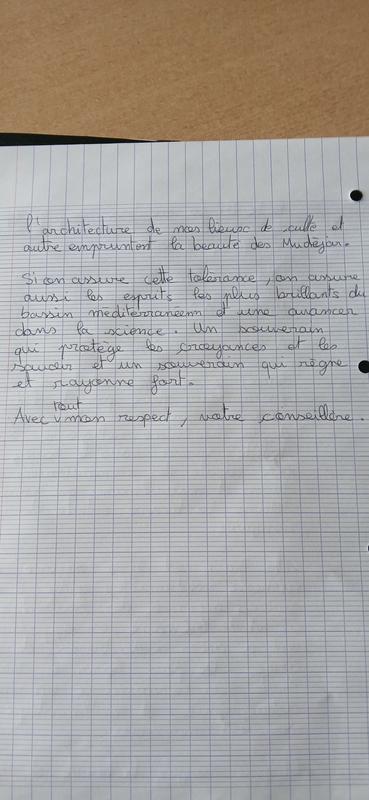 l'architecture de nos lieux de culte et
autre empruntent la beauté des Mudéjar.
Si on assure cette tolérance, on assure
aussi les esprits les plus brillants du
bassin méditerranéen et une avancer
dans la science. Un souverain
qui protège les croyances et les
savoir et un souverain qui règne
et rayonne fort.
Avec tout mon respect, votre conseillère.